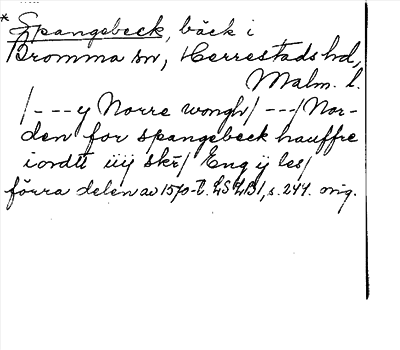 * Spangebeck, bäck i
Bromma sn, Herrestads hd,
Malm. l.
/---y Norre wongh/---/Nor-
den for spangebeck hauffre
iordtt iiij skr/ Eng ij les/
förra delen av 1570-t. LSLB1, s. 244. orig.